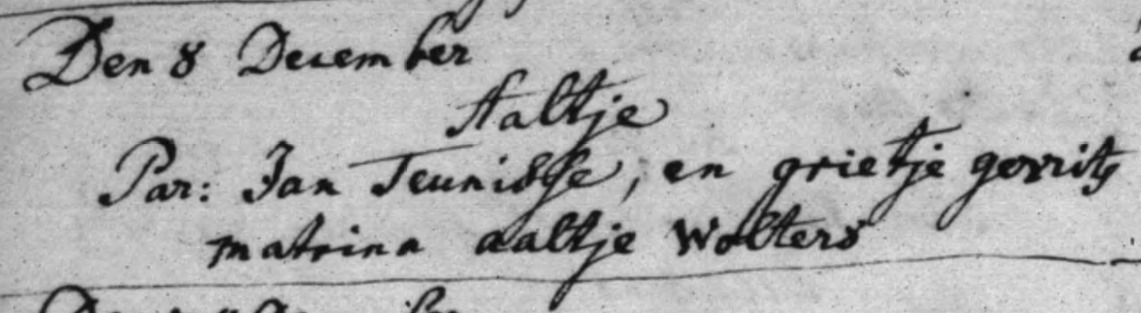 Den 8 December
Aaltje
Par: Jan Teunisse, en grietje gerrits
matrina aaltje Wolters